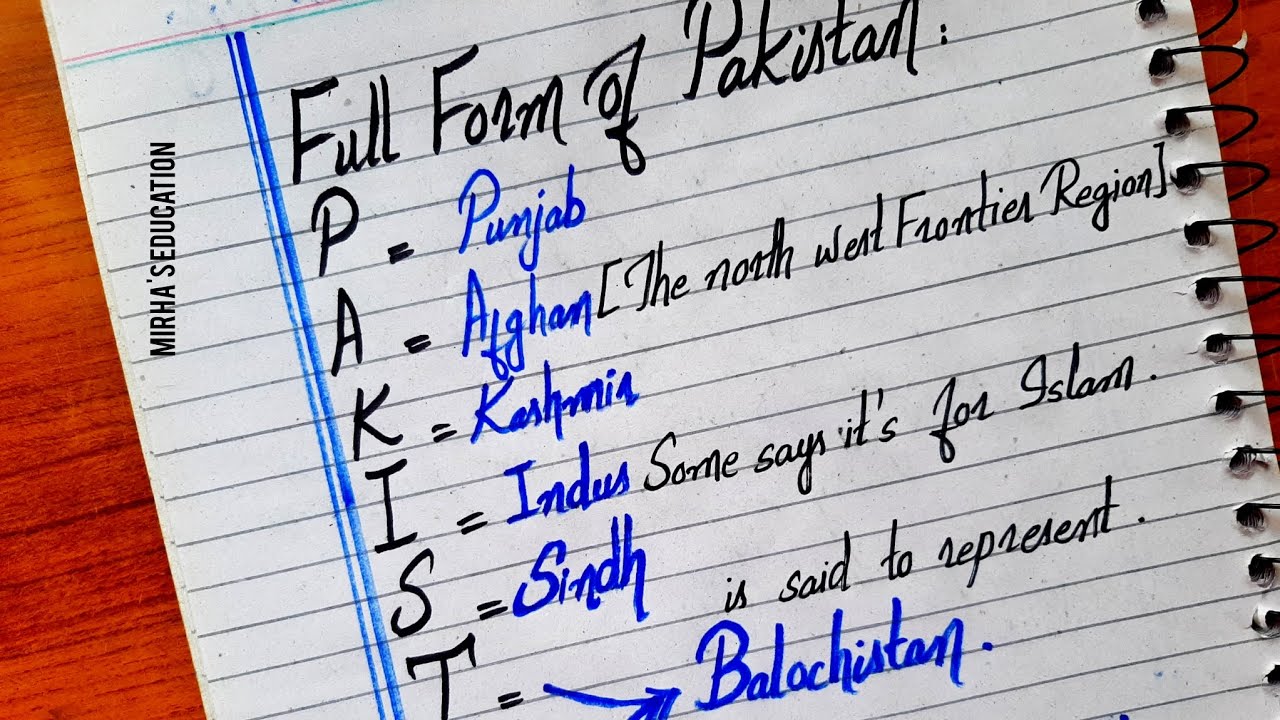 Full Form of Pakistan:
P = Punjab
A = Afghan [The north west Frontier Region]
K = Kashmir
I = Indus Some says it's for Islam.
S = Sindh
is said to represent.
T = → Balochistan.
MIRHA'S EDUCATION